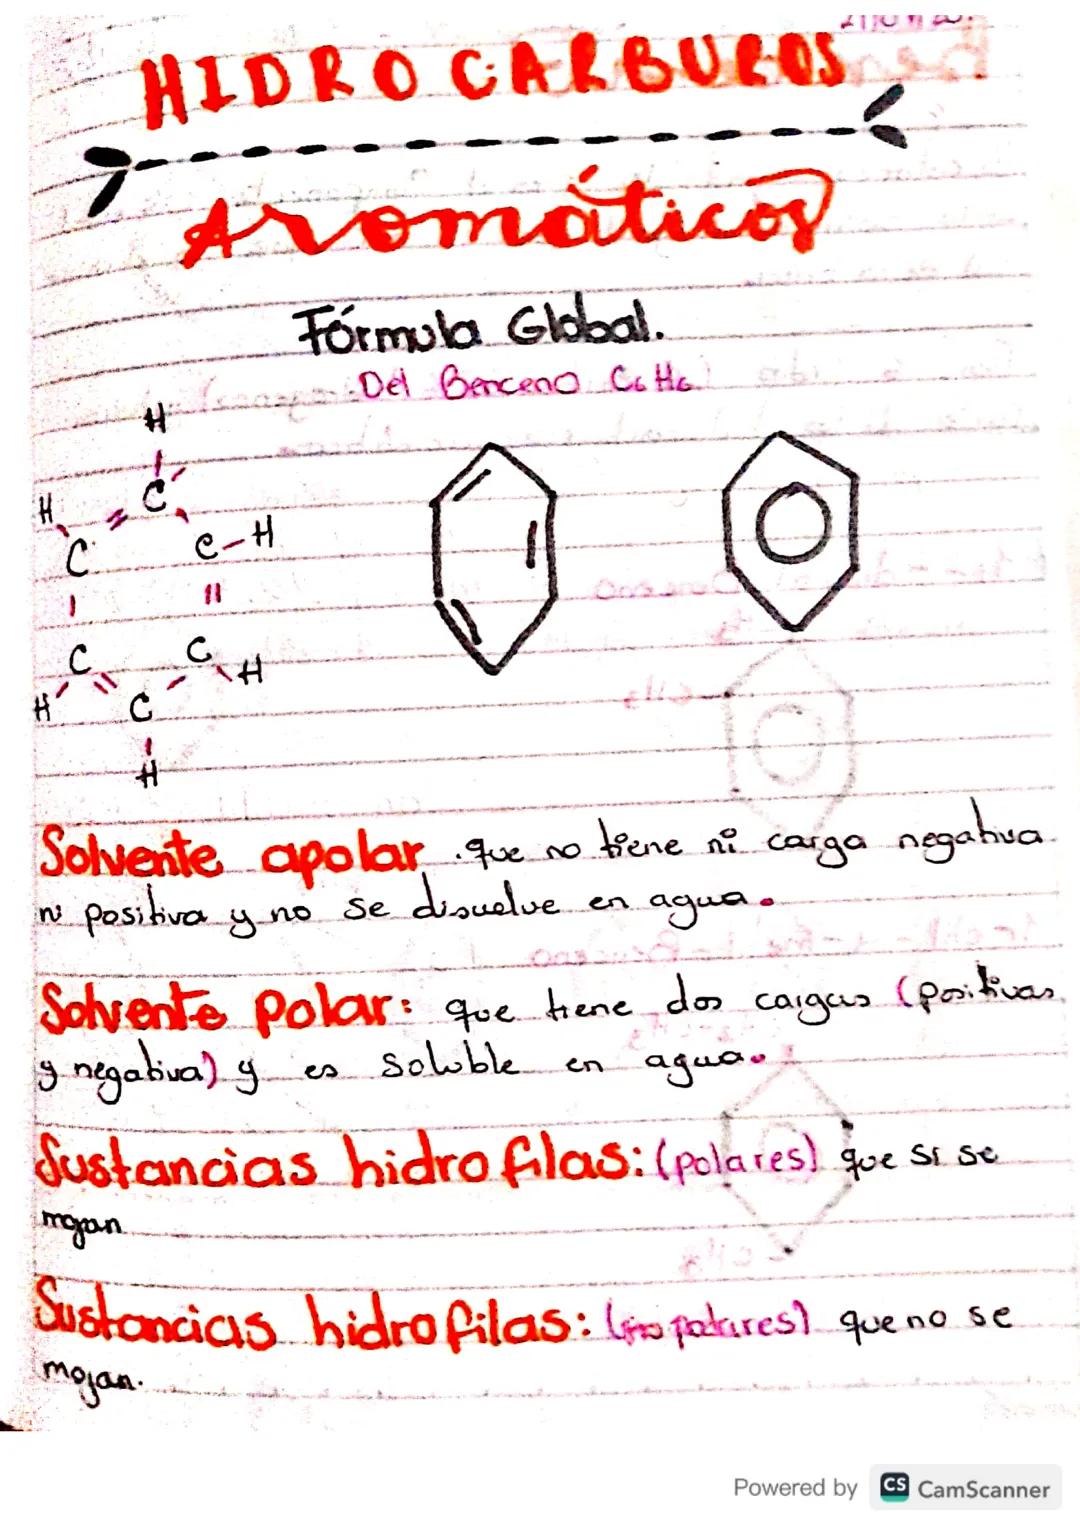 HIDROCARBUROS
Aromáticos
Fórmula Global.
Del Benceno C6 H6
H
H C
C C-H
C C H
H C
H
Solvente apolar .que no tiene ni carga negativa
ni positiva y no se disuelve en agua.
Solvente polar: que tiene dos cargas (positivas
y negativa) y es soluble en agua.
Sustancias hidrofilas: (polares) que si se
mojan
Sustancias hidrofilas: (no polares) que no se
mojan.
Powered by CS CamScanner